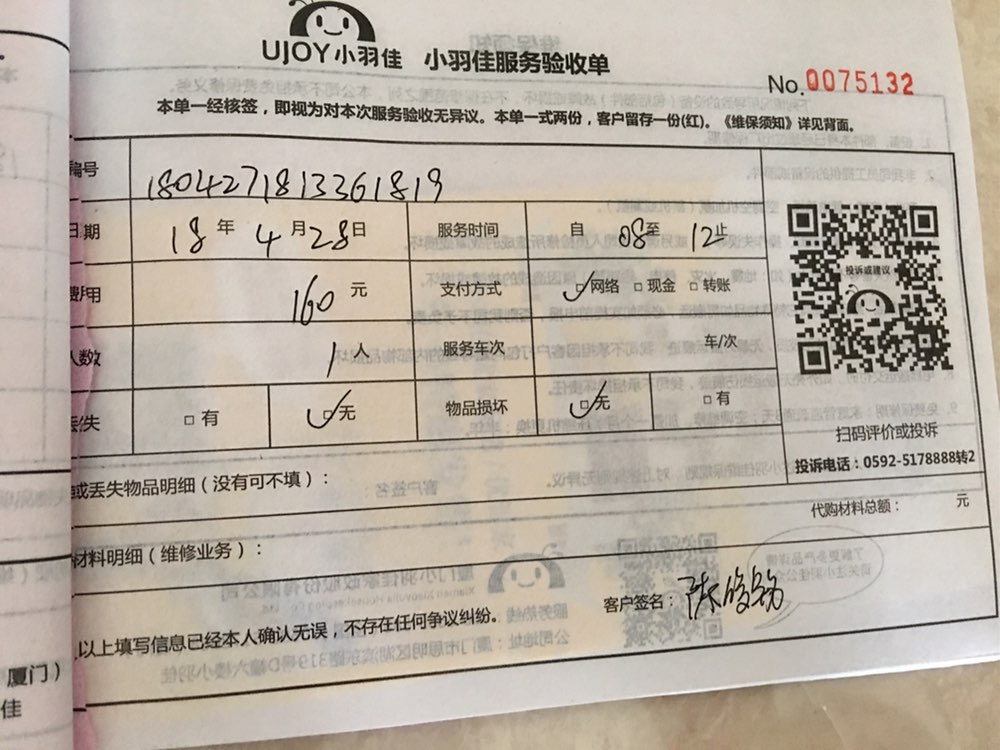 UJOY小羽佳 小羽佳服务验收单
No.0075132
本单一经核签，即视为对本次服务验收无异议。本单一式两份，客户留存一份(红)。《维保须知》详见背面。
编号 1804271813361819
日期 18 年 4 月 28 日 服务时间 自 08 至 12 止
费用 160 元 支付方式 网络 现金 转账
人数 1 人 服务车次 车/次
丢失 有 无 物品损坏 无 有
投诉或建议
扫码评价或投诉
投诉电话：0592-5178888转2
或丢失物品明细（没有可不填）：
代购材料总额： 元
材料明细（维修业务）：
客户签名：
以上填写信息已经本人确认无误，不存在任何争议纠纷。
厦门）
佳